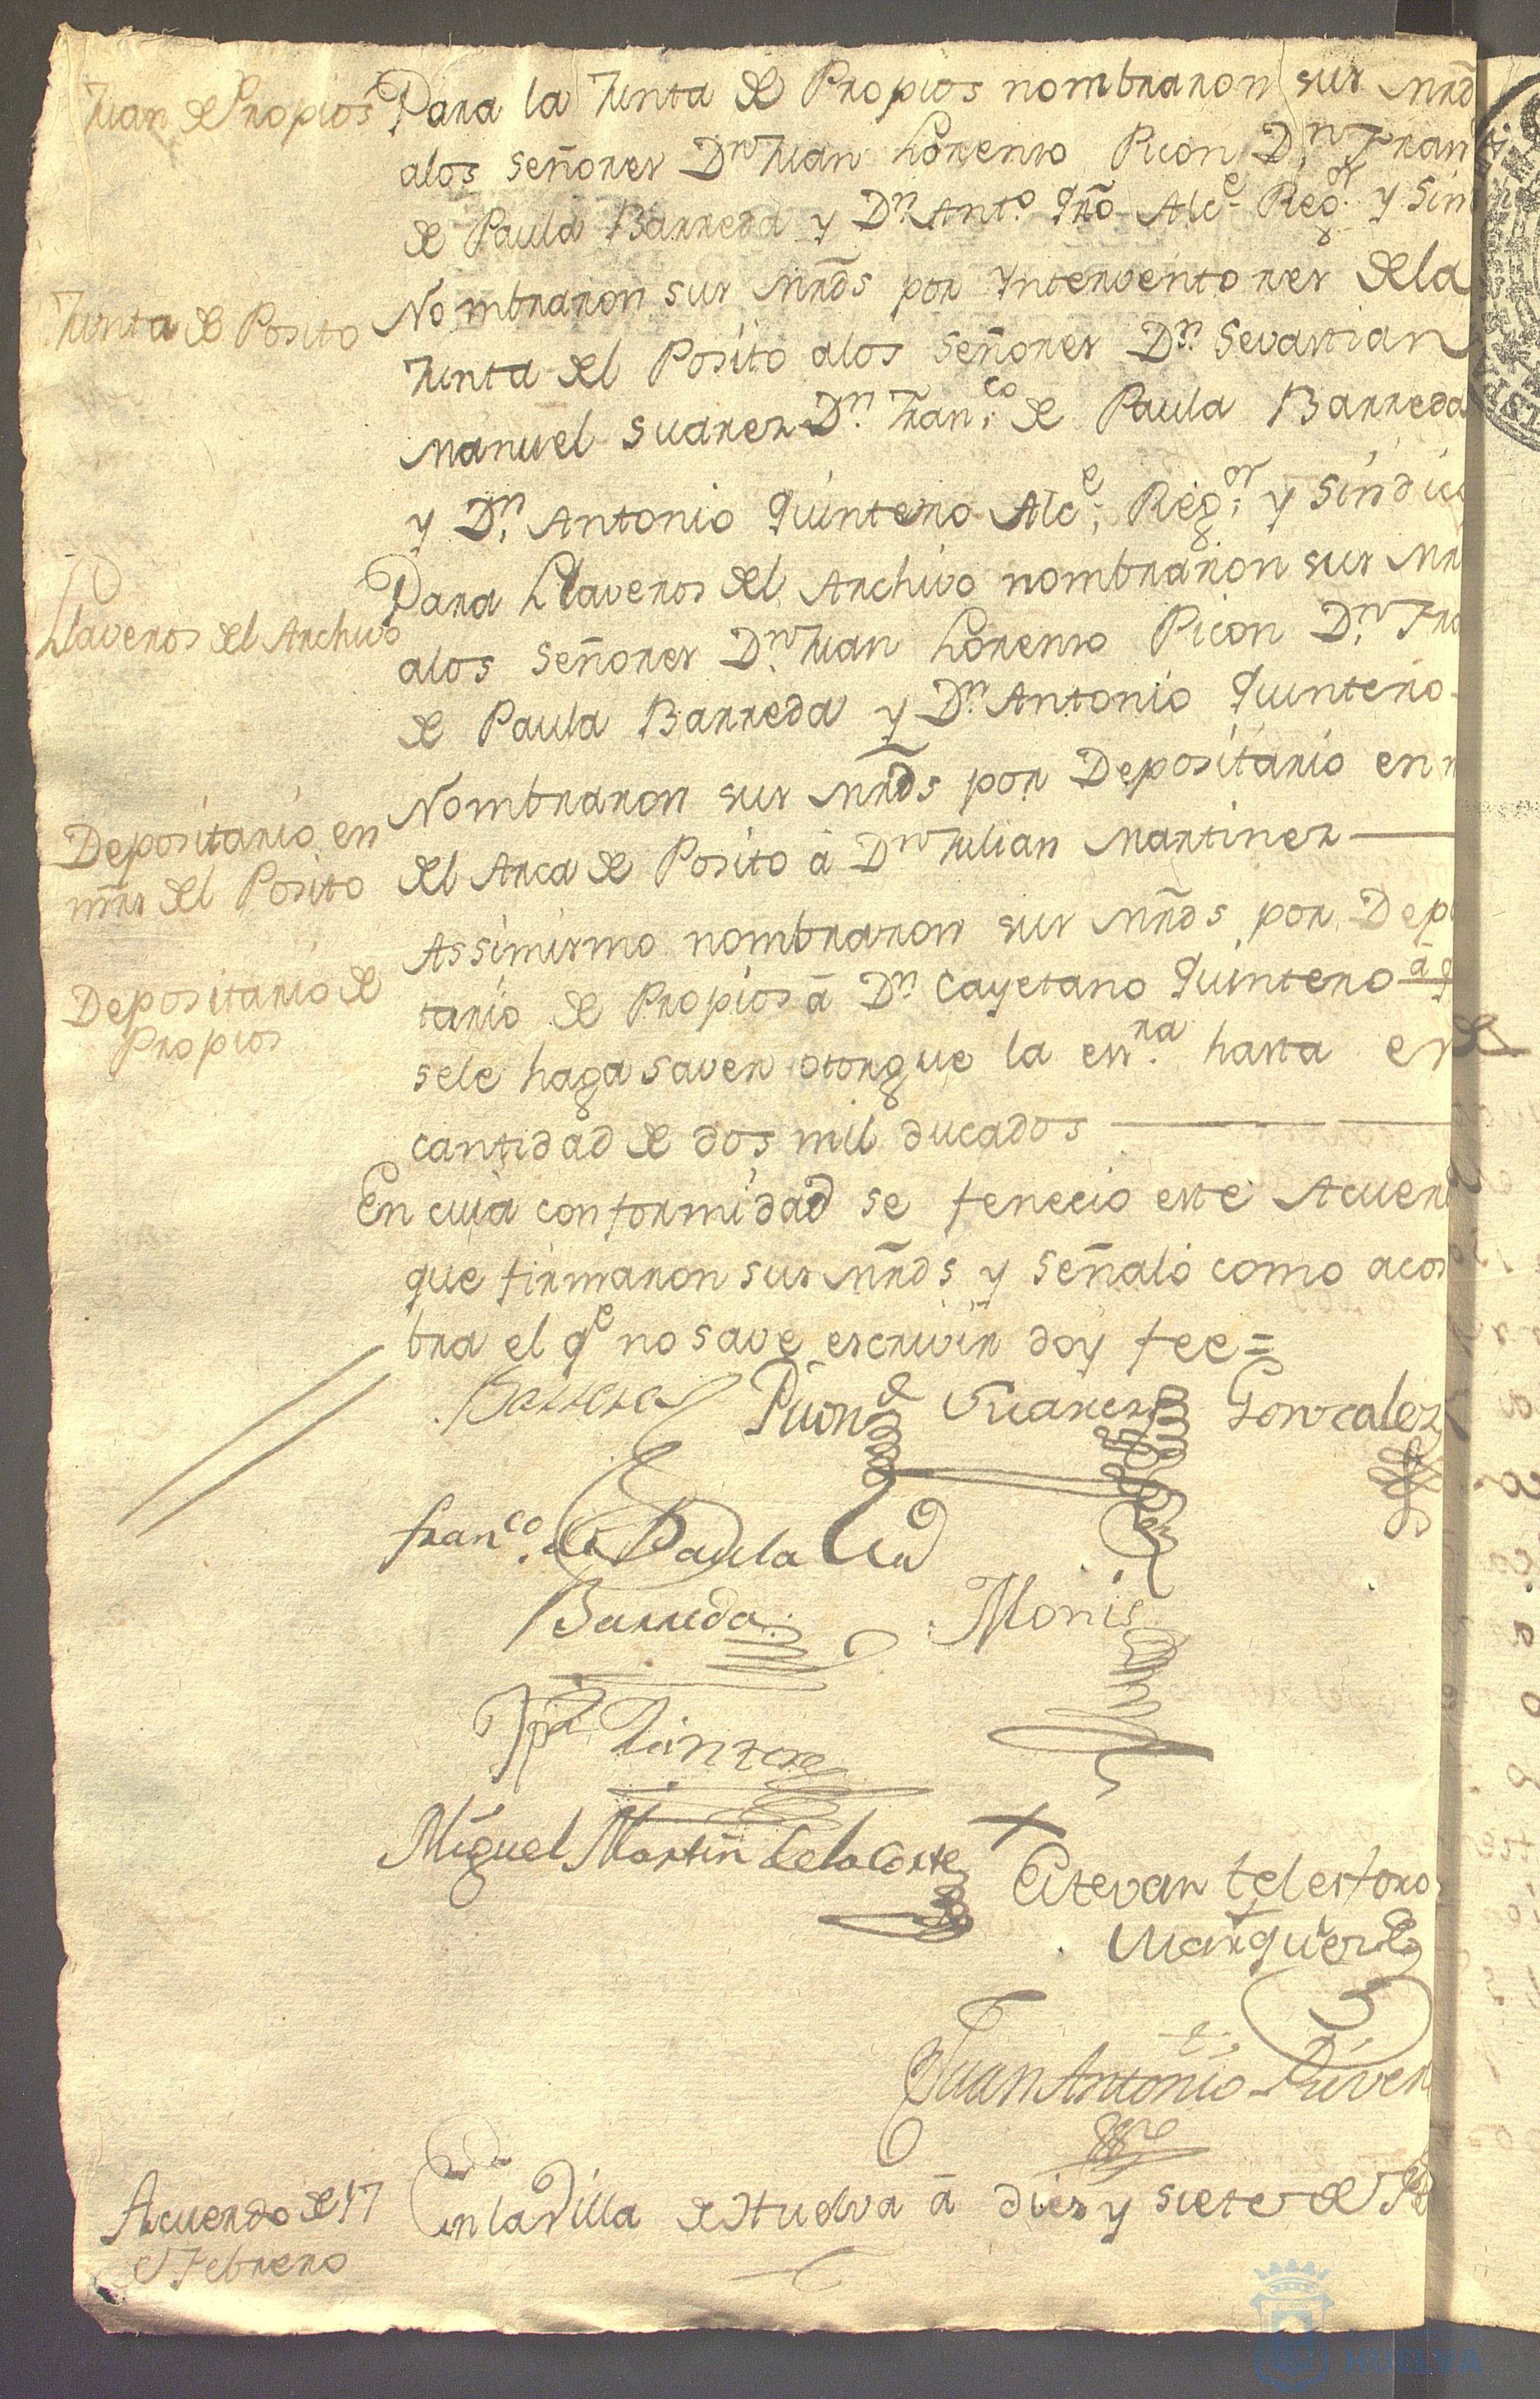 Juan de Propios
Para la Junta de Propios nombraron sus Mrd
alos Señores Dn Juan Lorenso Picon Dn Fran
de Paula Barreda y Dn Anto. Qro Alce. Regor. y Sin
Junta de Posito
Nombraron sus Mrds por Ynterventores dela
Junta del Posito alos Señores Dn. Sevastian
Manuel Suarez Dn. Franco. de Paula Barreda
y Dn. Antonio Quintero Alce. Regor. y Sindic
Llaveros del Archivo
Para Llaveros del Archivo nombraron sus Mr
alos Señores Dn. Juan Lorenso Picon Dn. Fra
de Paula Barreda y Dn. Antonio Quintero
Depositario en
mrs del Posito
Nombraron sus Mrds por Depositario en
del Arca de Posito â Dn Julian Martinez
Assimismo nombraron sus Mrds por Depo
Depositario de
Propios
tario de Propios â Dn. Cayetano Quintero â
sele haga saver otorgue la essra. hasta en
cantidad de dos mil ducados
En cuia conformidad se fenecio este Acuer
que firmaron sus Mrds y Señaló como acos
bra el qe no save escrivir doy fee =
Picon Suarez Gonzalez
Franco. de Paula
Barreda Monis
Quintero
Miguel Martin dela Corte
Estevan telesforo
Marquez
Juan Antonio River
Acuerdo de 17
de Febrero
En la Villa de Huelva â dies y siete de Fe
HUELVA